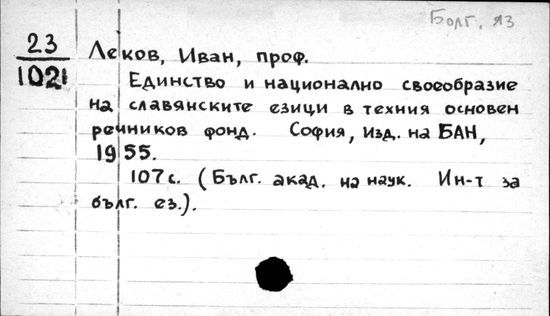 Болг. яз
23
1021
Леков, Иван, проф.
Единство и национално своеобразие
на славянските езици в техния основен
речников фонд. София, Изд. на БАН,
1955.
107 с. (Бълг. акад. на наук. Ин-т за
бълг. ез.).